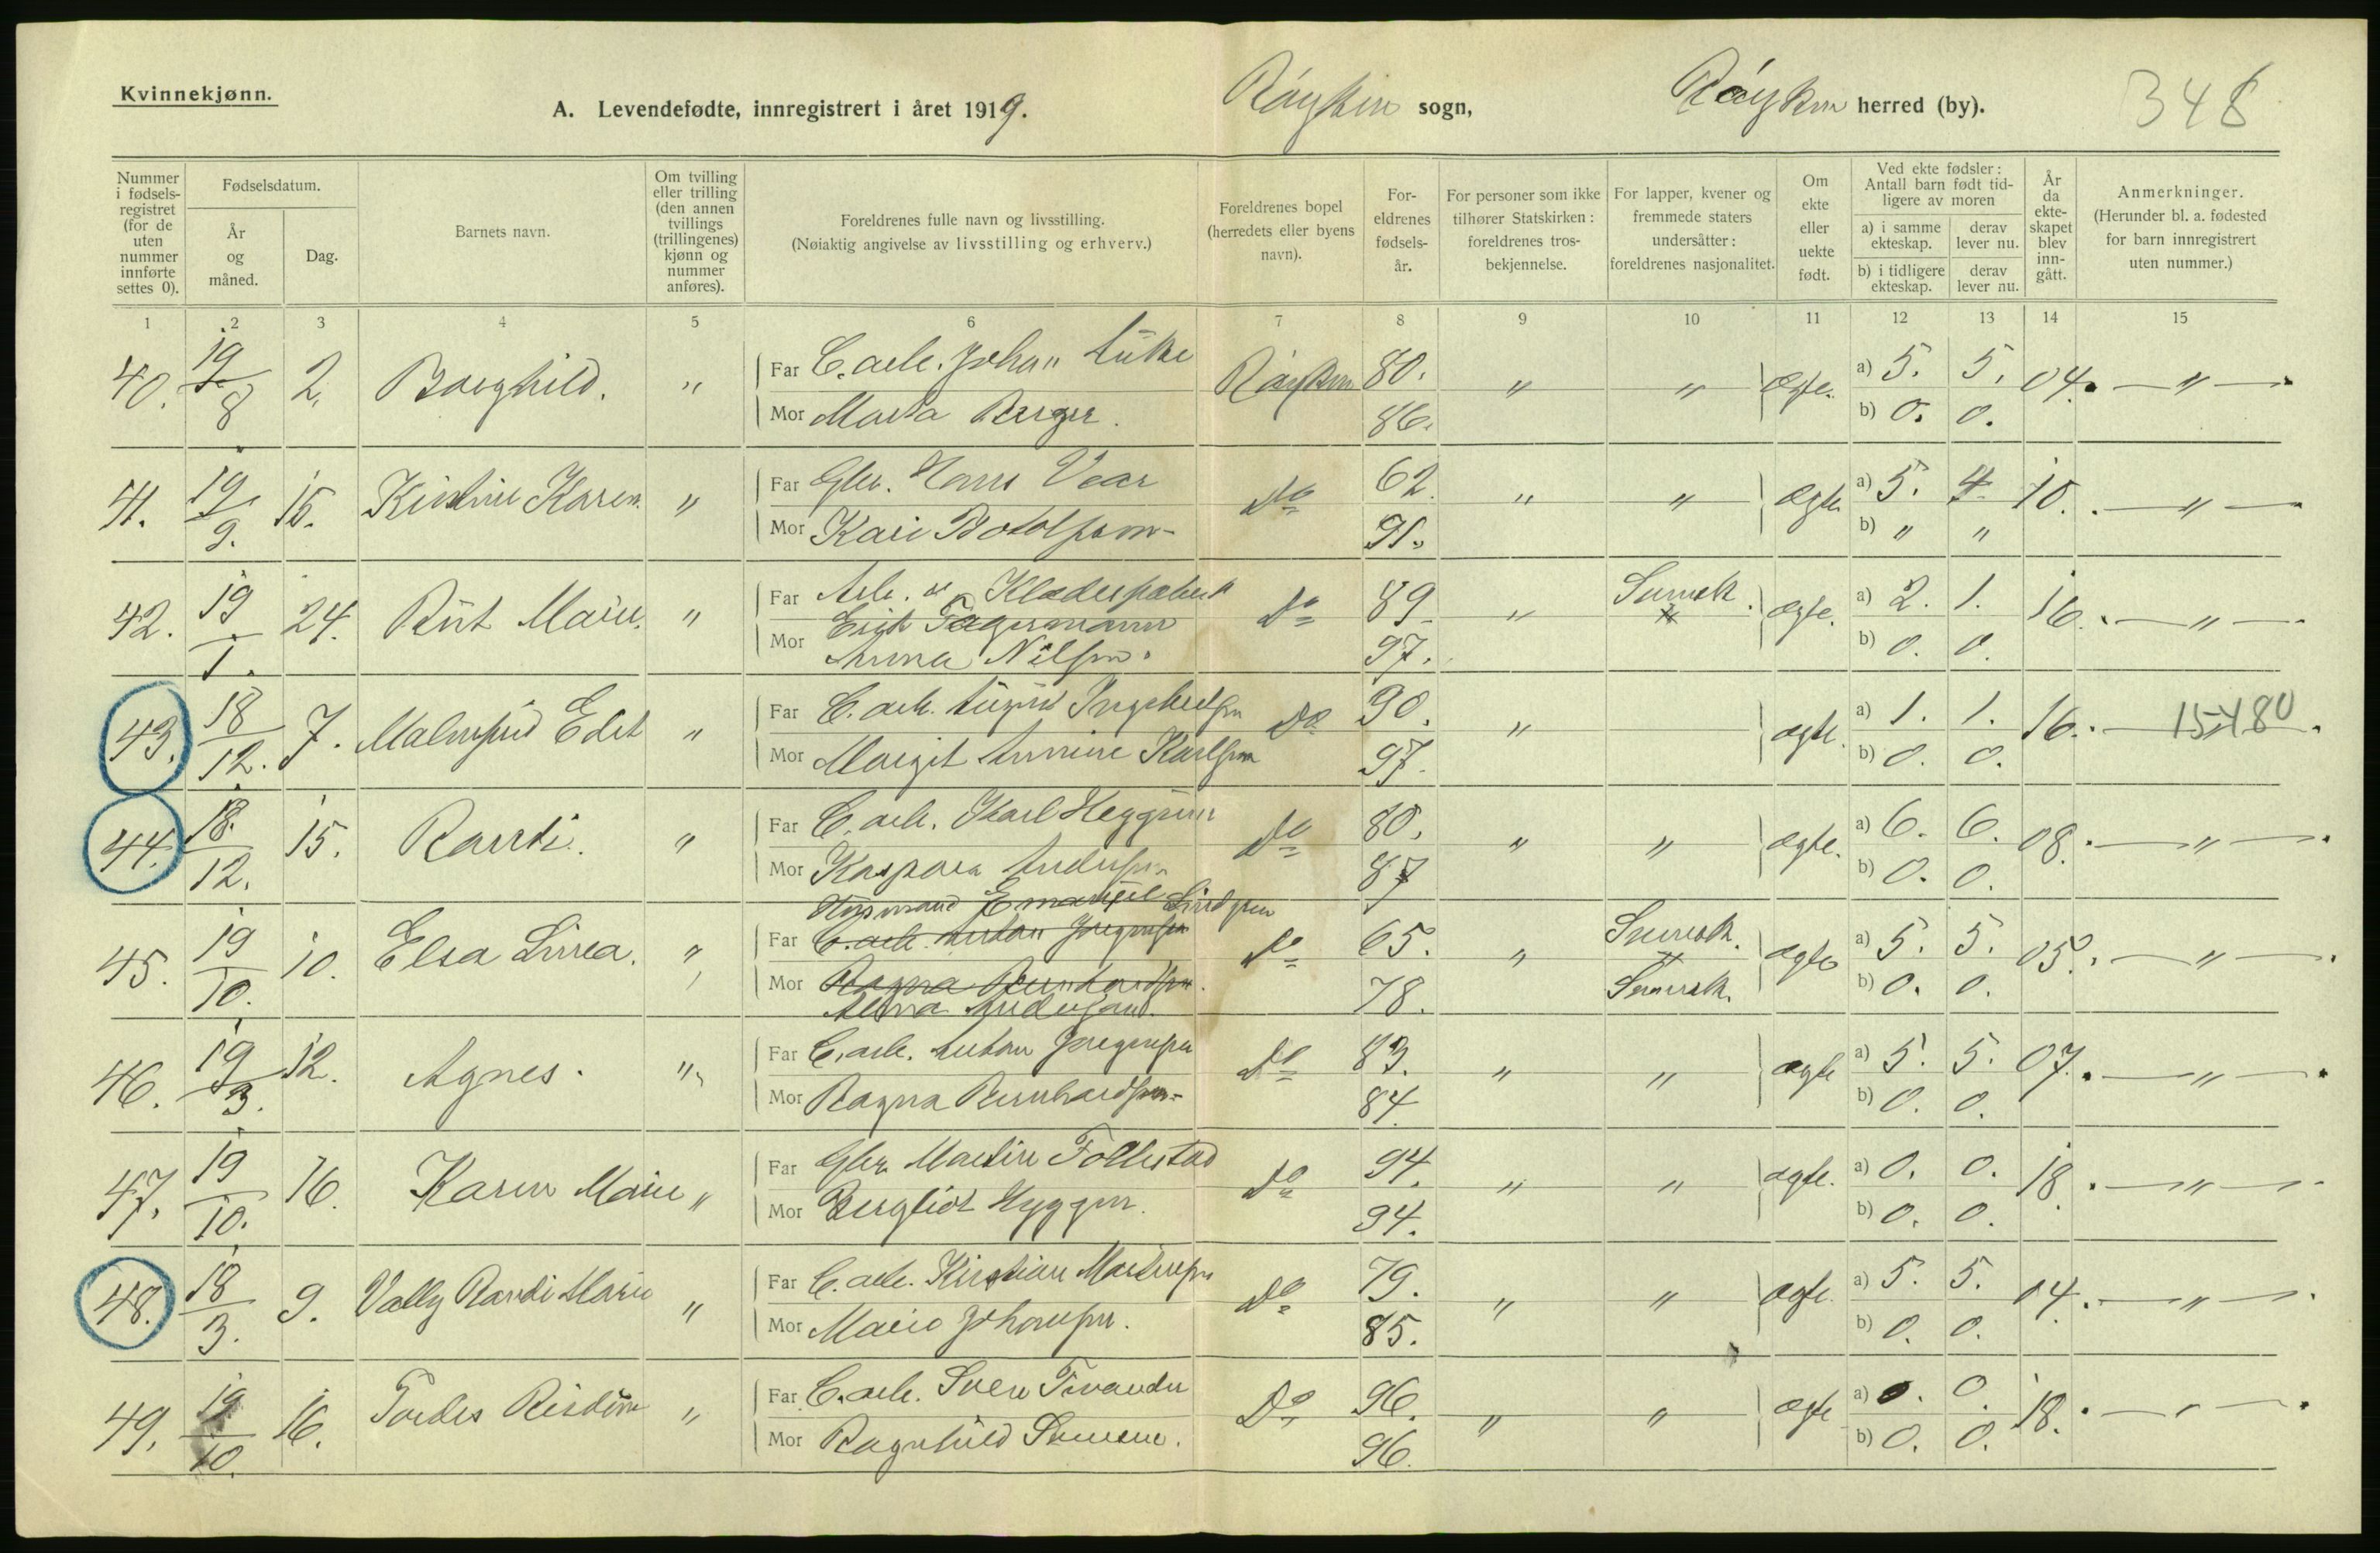 Kvinnekjønn.
A. Levendefødte, innregistrert i året 1919. Røyken sogn, Røyken herred (by). 348
Nummer i fødselsregistret (for de uten nummer innførte settes 0).
Fødselsdatum.
År og måned.
Dag.
Barnets navn.
Om tvilling eller trilling (den annen tvillings (trillingenes) kjønn og nummer anføres).
Foreldrenes fulle navn og livsstilling.
(Nøiaktig angivelse av livsstilling og erhverv.)
Foreldrenes bopel (herredets eller byens navn).
Foreldrenes fødselsår.
For personer som ikke tilhører Statskirken: foreldrenes trosbekjennelse.
For lapper, kvener og fremmede staters undersåtter: foreldrenes nasjonalitet.
Om ekte eller uekte født.
Ved ekte fødsler: Antall barn født tidligere av moren
a) i samme ekteskap.
derav lever nu.
b) i tidligere ekteskap.
derav lever nu.
År da ekteskapet blev inngått.
Anmerkninger.
(Herunder bl. a. fødested for barn innregistrert uten nummer.)
1 2 3 4 5 6 7 8 9 10 11 12 13 14 15
40. 19/8 2. Borghild. " Far C. arb. Johan Røyken 80. " " ægte. a) 5. 5. 04. — " —
Mor Marta Berger. 86. b) 0. 0.
41. 19/9. 15. Kirstine Karen. " Far Gbr. Hans Vear Do 62. " " ægte a) 5. 4. 10. — " —
Mor Kari Botolfsen 91. b) " "
42. 19/1. 24. Rut Marie. " Far Arb. Do 89. " Svensk. ægte. a) 2. 1. 16. — " —
Mor Erik Fagermann
Anna Nilsen. 97. b) 0. 0.
43. 18/12. 7. Edit " Far C. arb. Ingebretsen Do 90. " ægte. a) 1. 1. 16. 15480
Mor Margit Annine Karlsen 97. b) 0. 0.
44. 18./12. 15. Randi. " Far C. arb. Karl Heggum Do 80. " " ægte. a) 6. 6. 08. — " —
Mor Kaspara Andersen 87 b) 0. 0.
Husmand Emanuel Lindgren
45. 19/10. 10. Elsa Linea. " Far C. arb. Anton Jørgensen Do 65. " Svensk. ægte a) 5. 5. 05. — " —
Mor Ragna Bernhardsen. 78. Svensk. b) 0. 0.
Anna Andersand.
46. 19/3. 12. Agnes. " Far C. arb. Anton Jørgensen Do 83. " " ægte a) 5. 5. 07. — " —
Mor Ragna Bernhardsen 84. b) 0. 0.
47. 19/10. 16. Karen Marie " Far Gbr. Martin Follestad Do 94. " " ægte. a) 0. 0. 18. — " —
Mor Bergliot Hyggen. 94. b) 0. 0.
48. 18/3. 9. Vally Randi Marie " Far C. arb. Kristian Martinsen Do 79. " " ægte. a) 5. 5. 04. — " —
Mor Marie Johansen. 85. b) 0. 0.
49. 19/10. 16. Tordes " Far C. arb. Sven Do 96. " " ægte a) 0. 0. 18. — " —
Mor Ragnhild 96. b) 0. 0.